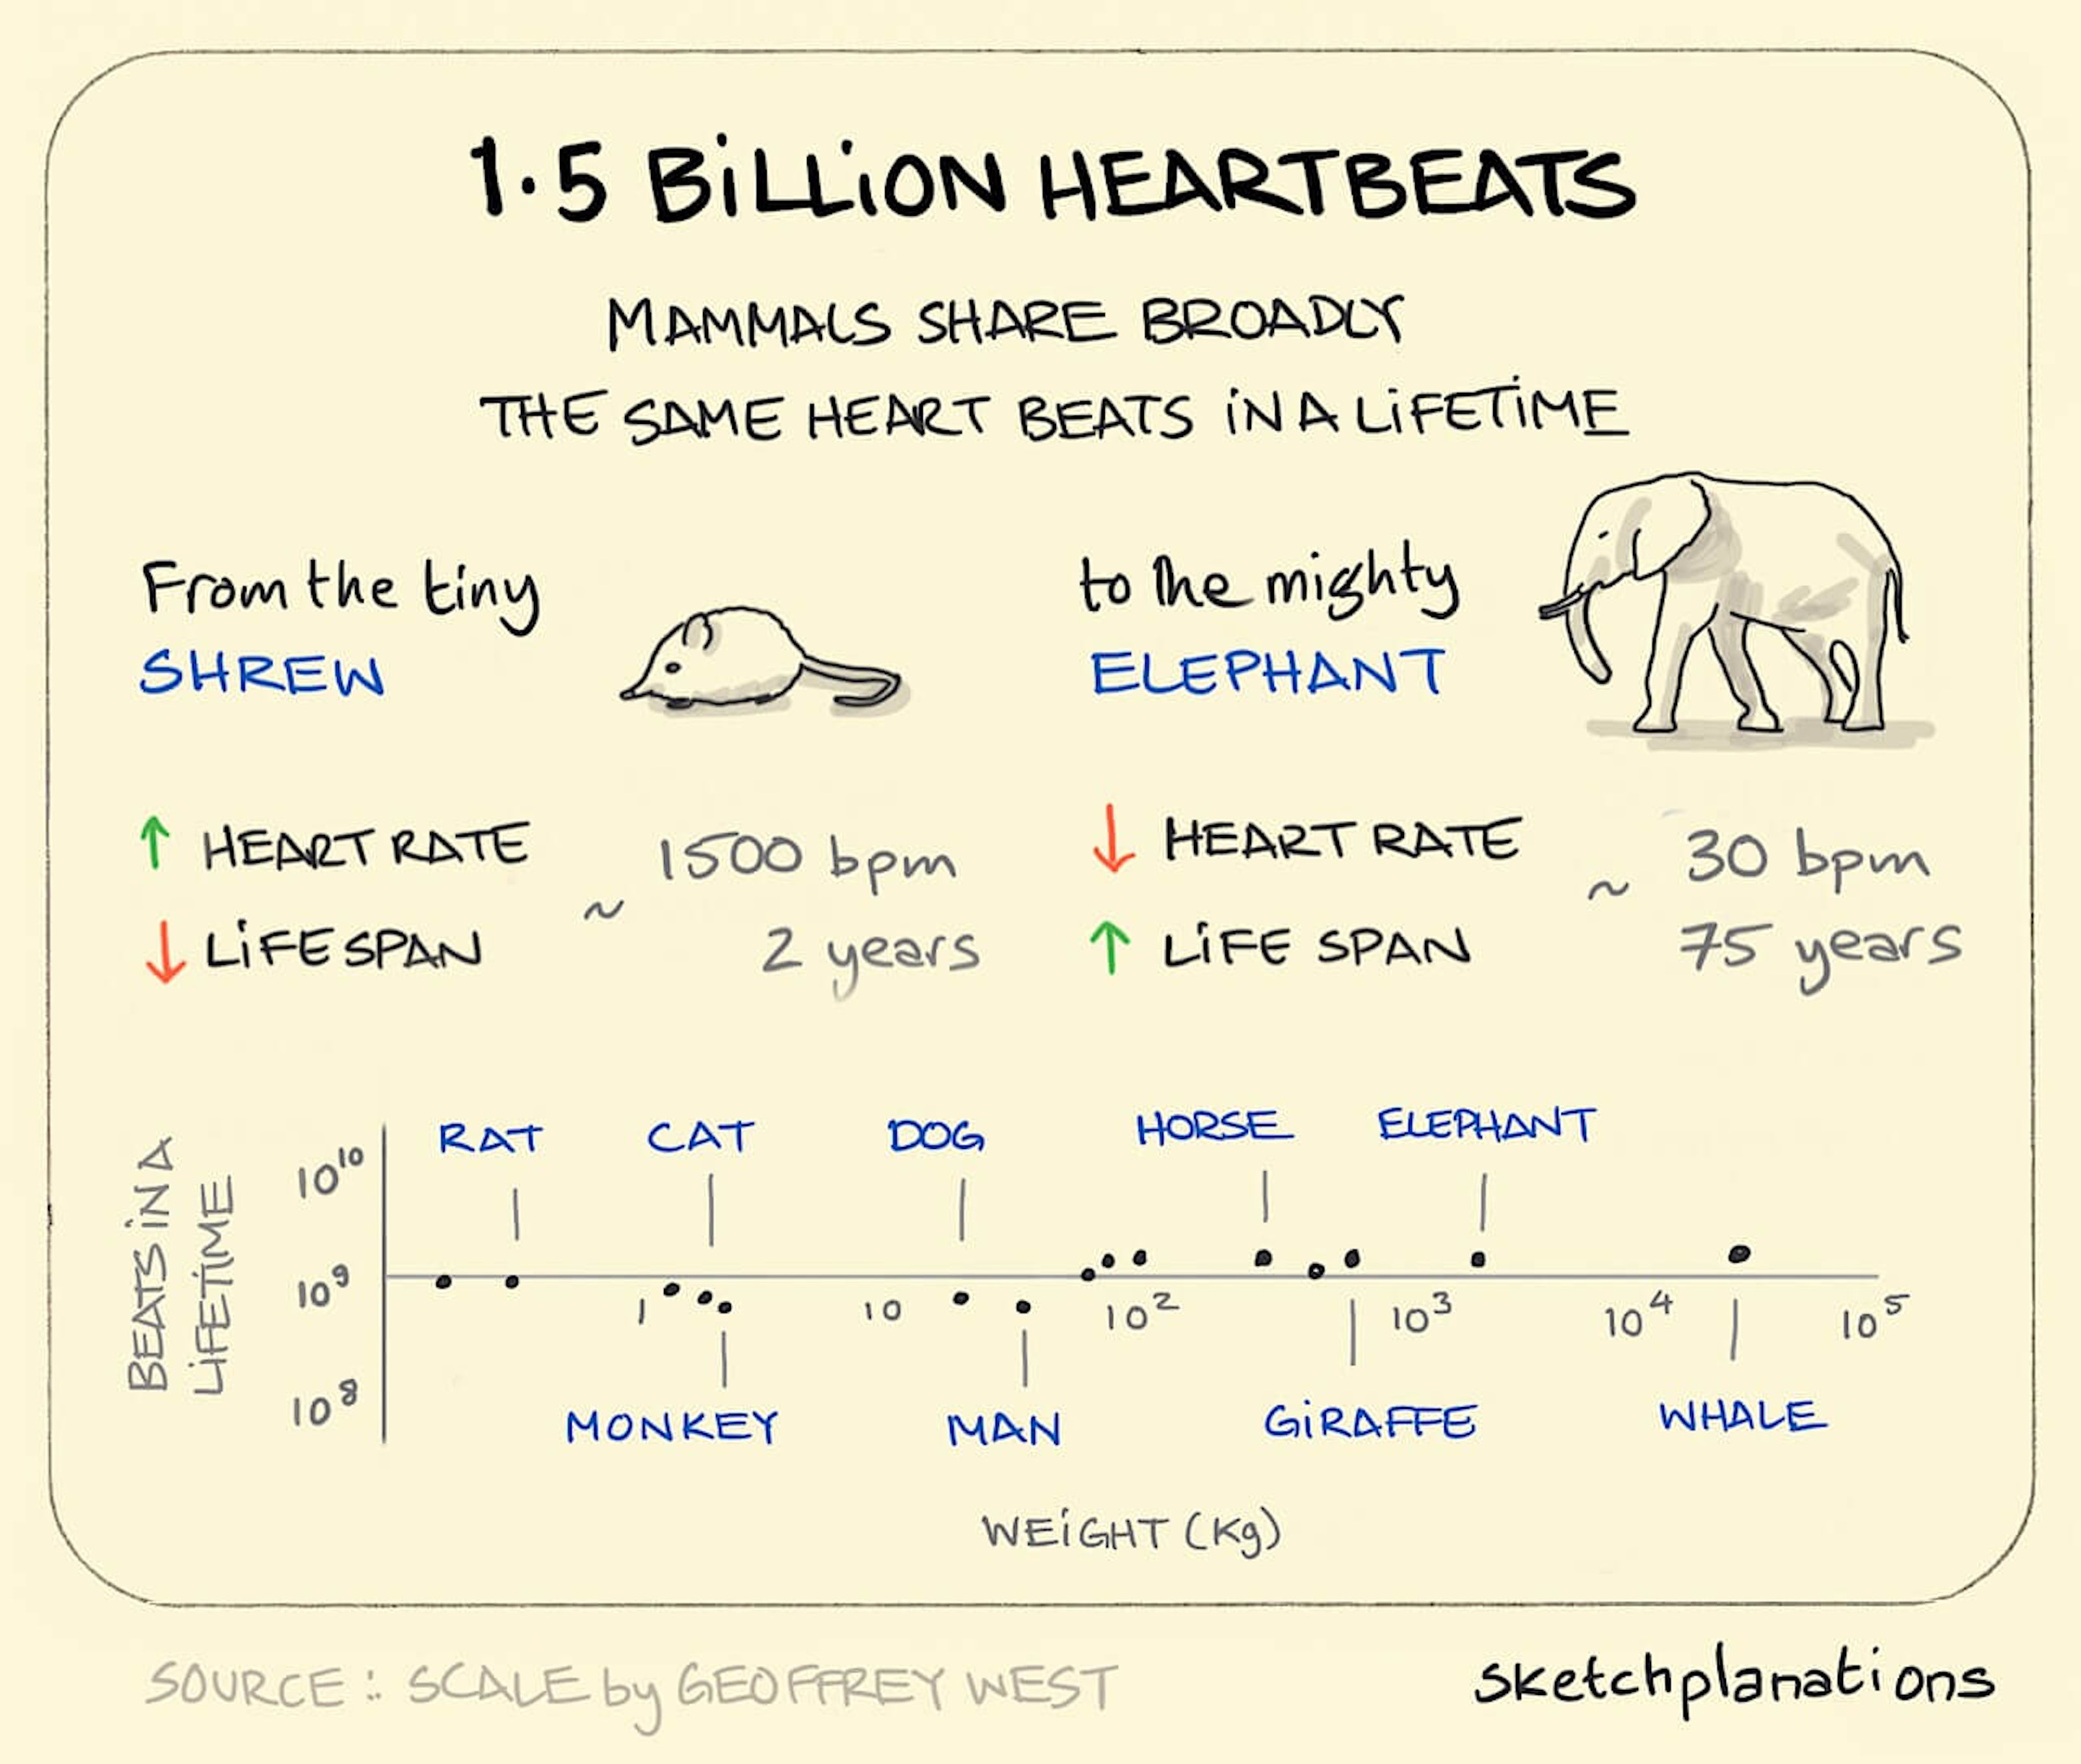 1.5 BiLLiON HEARTBEATS
MAMMALS SHARE BROADLY
THE SAME HEART BEATS iN A LiFETiME
From the tiny
SHREW
to the mighty
ELEPHANT
↑ HEART RATE
~ 1500 bpm
↓ LiFE SPAN
2 years
↓ HEART RATE
~ 30 bpm
↑ LiFE SPAN
75 years
BEATS iN A
LiFETiME
10¹⁰
10⁹
10⁸
RAT
CAT
DOG
HORSE
ELEPHANT
1
10
10²
10³
10⁴
10⁵
MONKEY
MAN
GiRAFFE
WHALE
WEiGHT (Kg)
SOURCE : SCALE by GEOFFREY WEST
sketchplanations